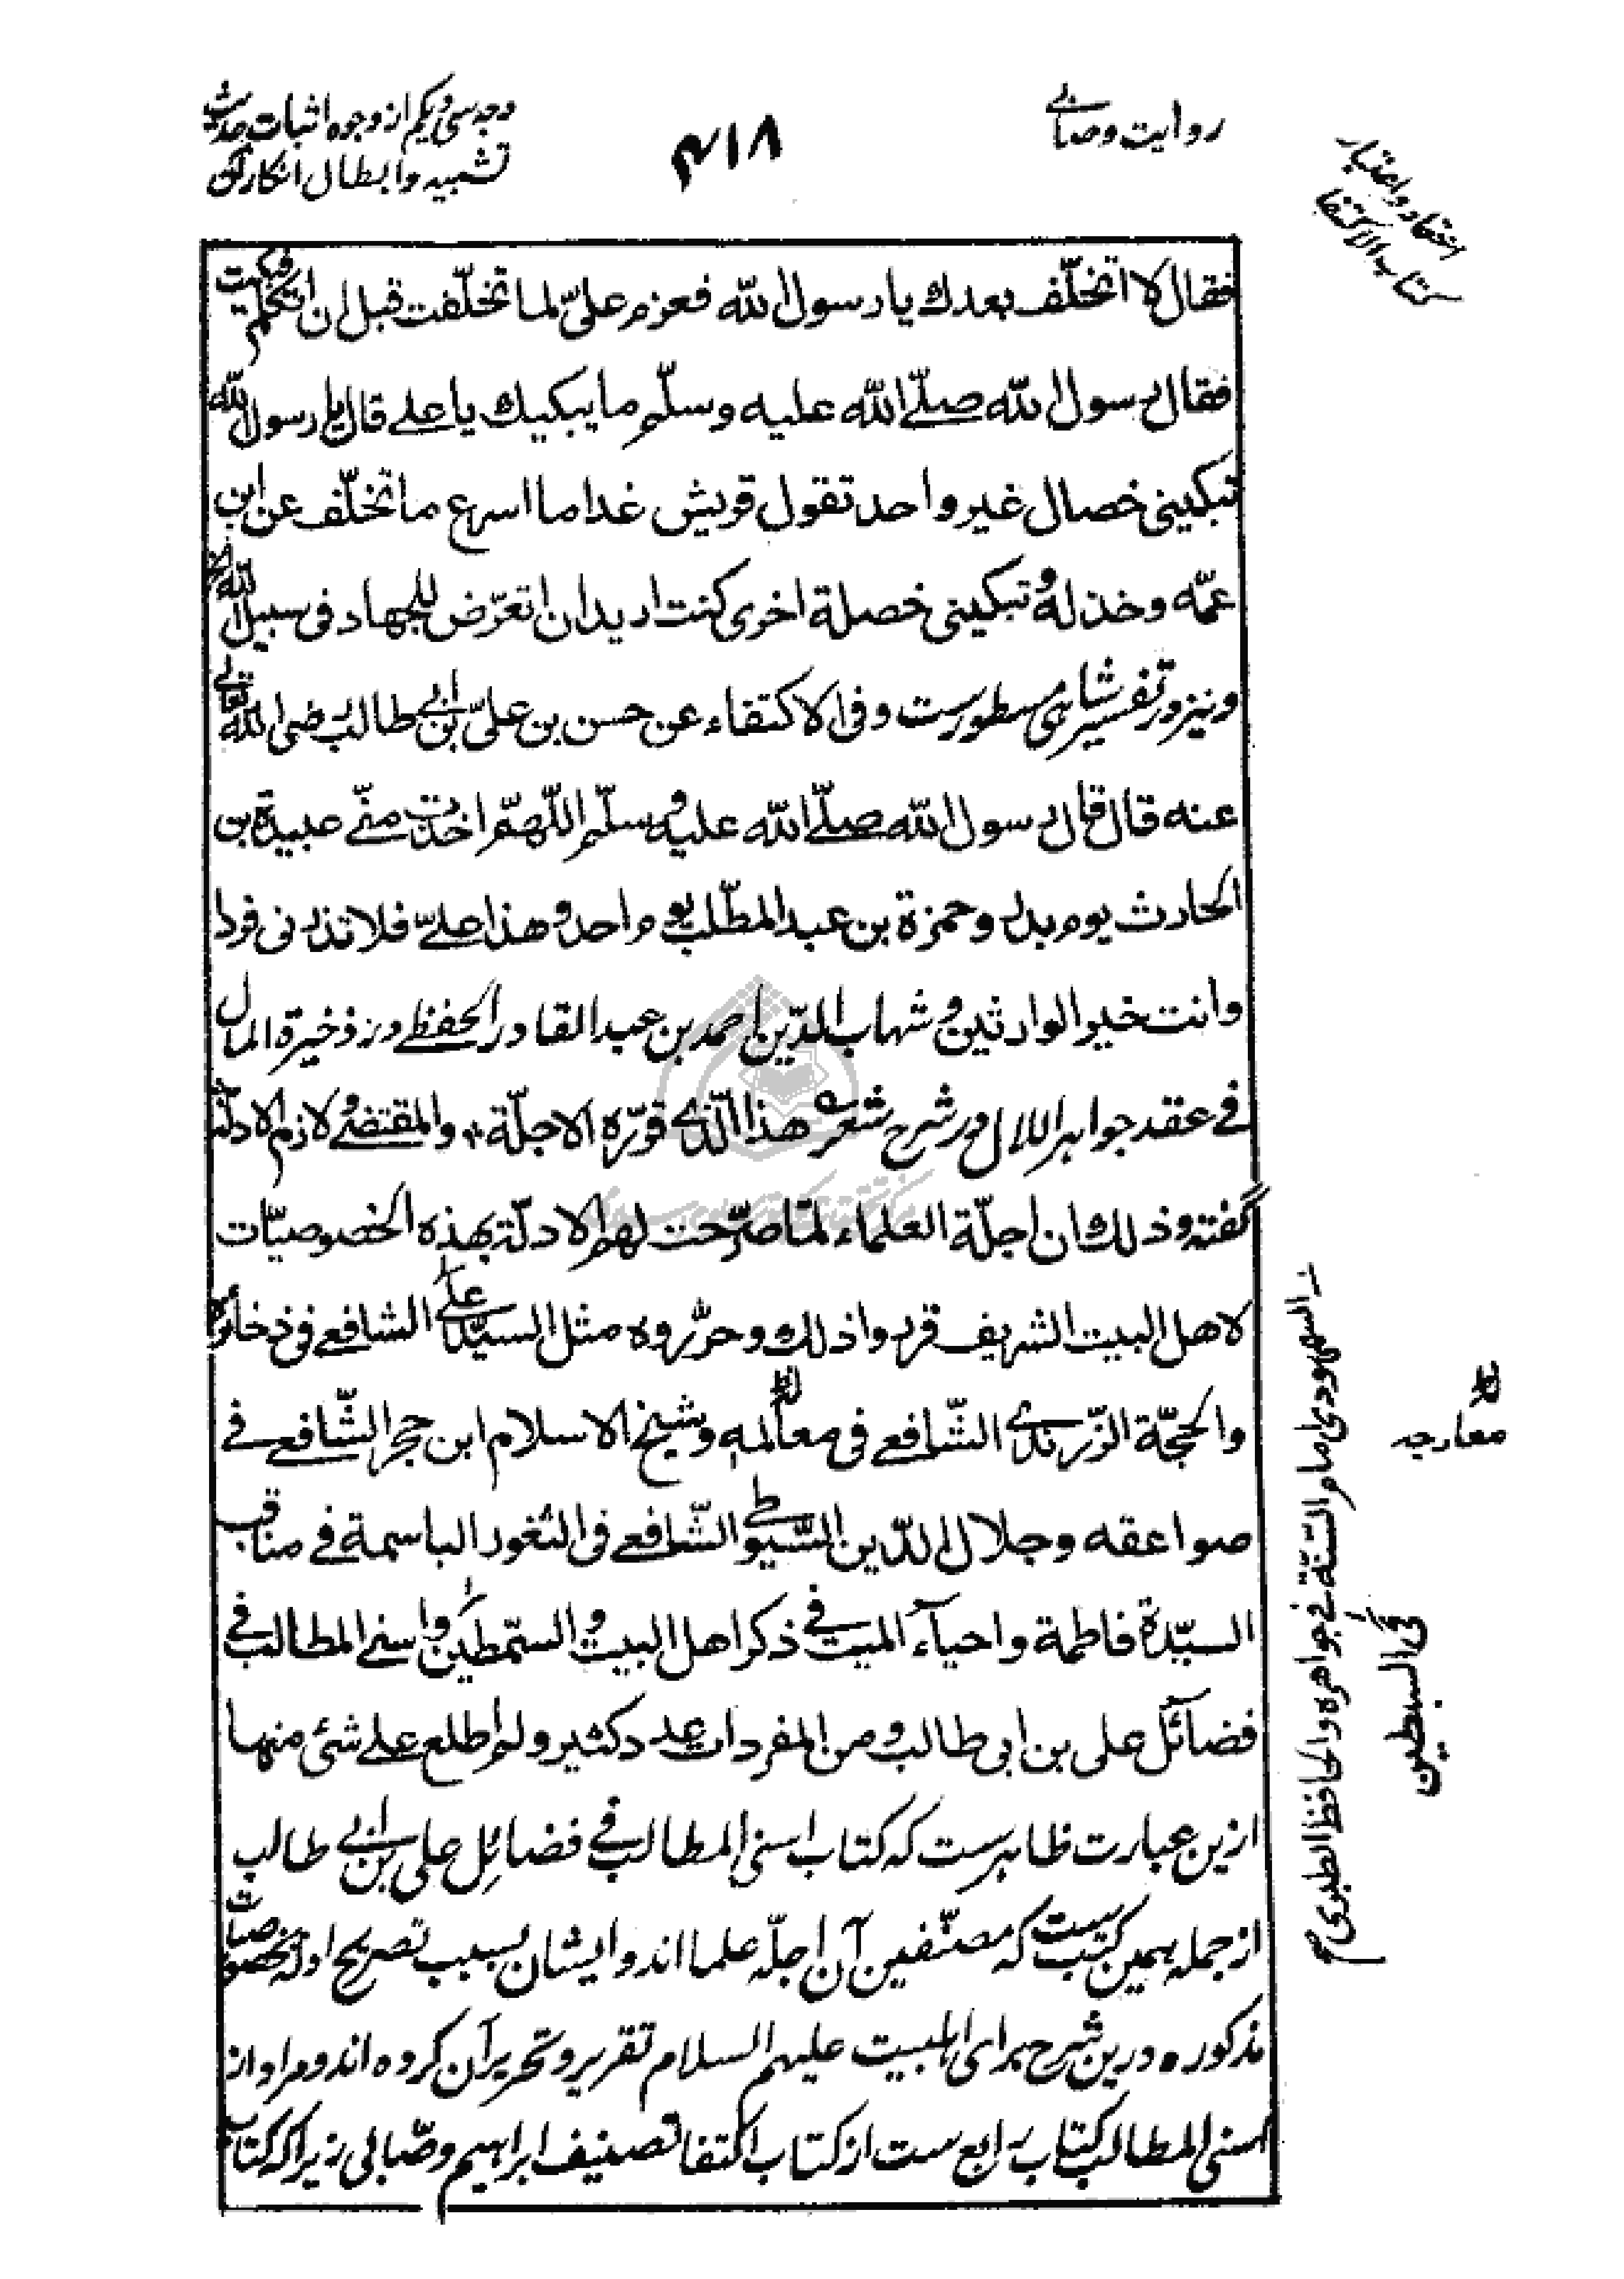 روایت وصابی
۴۱۸
وجه سی و یکم از وجوه اثبات حدیث
تشبیه و ابطال انکار آن
اعتماد و اعتبار
کتاب الاکتفا
فقال لا اتخلّف بعدك یا رسول الله فعزم علیّ لما تخلّفت قبل ان اتکلم فبکیت
فقال رسول الله صلّی الله علیه وسلّم ما یبکیك یا علی قال یا رسول الله
تبکینی خصال غیر واحد تقول قریش غدا ما اسرع ما تخلّف عن ابن
عمّه وخذله وتبکینی خصلة اخری کنت ارید ان اتعرّض للجهاد فی سبیل الله
ونیز در تفسیر شاهی مسطورست وفی الاکتفاء عن حسن بن علیّ بن ابی طالب رضی الله تعالی
عنه قال قال رسول الله صلّی الله علیه وسلّم اللّهمّ اخذت منّی عبیدة بن
الحارث یوم بدر وحمزة بن عبد المطّلب یوم احد وهذا علیّ فلا تذرنی فردا
وانت خیر الوارثین و شهاب الدّین احمد بن عبد القادر الحفظی در ذخیرة المال
فی عقد جواهر اللال در شرح شعر هذا الّذی قرّره الاجلّة * والمقتضی لازم الادلّة
گفته وذلك ان اجلّة العلماء لمّا صرّحت لهم الادلّة بهذه الخصوصیّات
لاهل البیت الشریف قرروا ذلك وحرّروه مثل السیّد علی الشافعی فی ذخائره
والحجّة الزّرندی الشّافعی فی معالمه وشیخ الاسلام ابن حجر الشّافعی فی
معارجه
صواعقه وجلال الدّین السّیوطی الشّافعی فی الثغور الباسمة فی مناقب
السیّدة فاطمة واحیاء المیت فی ذکر اهل البیت والسّمطین واسنی المطالب فی
فضائل علی بن ابی طالب ومن المفردات عدد کثیر ولم اطلع علی شئ منها
ازین عبارت ظاهرست که کتاب اسنی المطالب فی فضائل علی بن ابی طالب
از جمله همین کتب ست که مصنّفین آن اجلّه علما اند و ایشان بسبب تصریح ادله بخصوصیات
مذکوره درین شرح برای اهلبیت علیهم السلام تقریر و تحریر آن کرده اند و مراد از
اسنی المطالب کتاب رابع ست از کتاب اکتفا تصنیف ابراهیم وصّابی زیرا که کتاب
السمهودی امام السّنّة فی جواهره والحافظ الطبری
فی السبطین